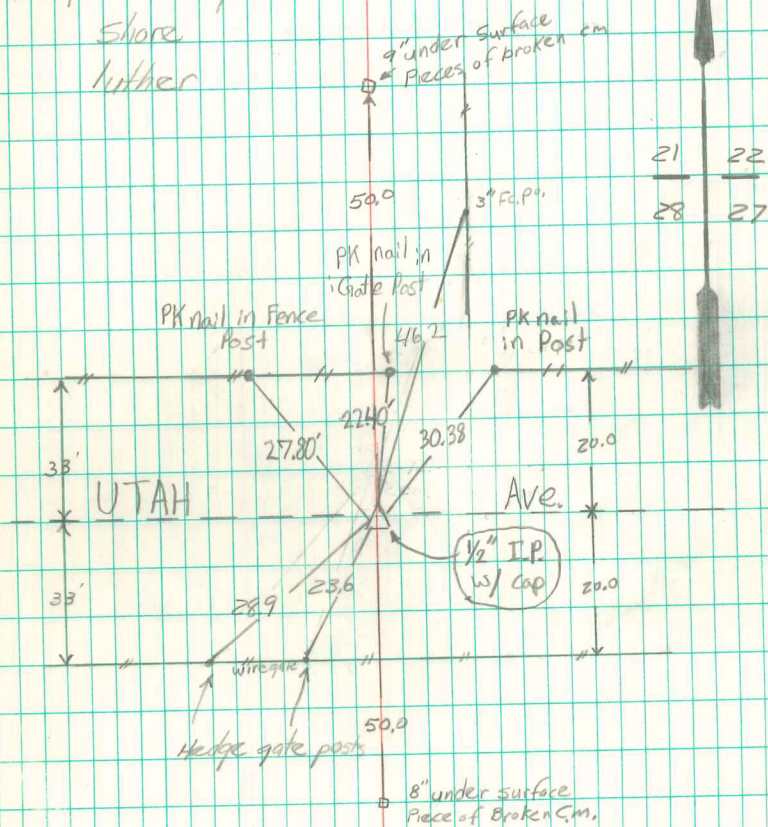 Shore
luther
9" under Surface
Pieces of broken cm
21 22
28 27
50.0
3" Fc. Po.
PK nail in
Gate Post
PK nail in Fence
Post
46.2
PK nail
in Post
22.40'
27.80'
30.38
33'
20.0
UTAH Ave.
1/2" I.P.
w/ cap
33'
20.0
28.9
23.6
wire gate
50.0
Hedge gate posts
8" under surface
Piece of Broken C.M.